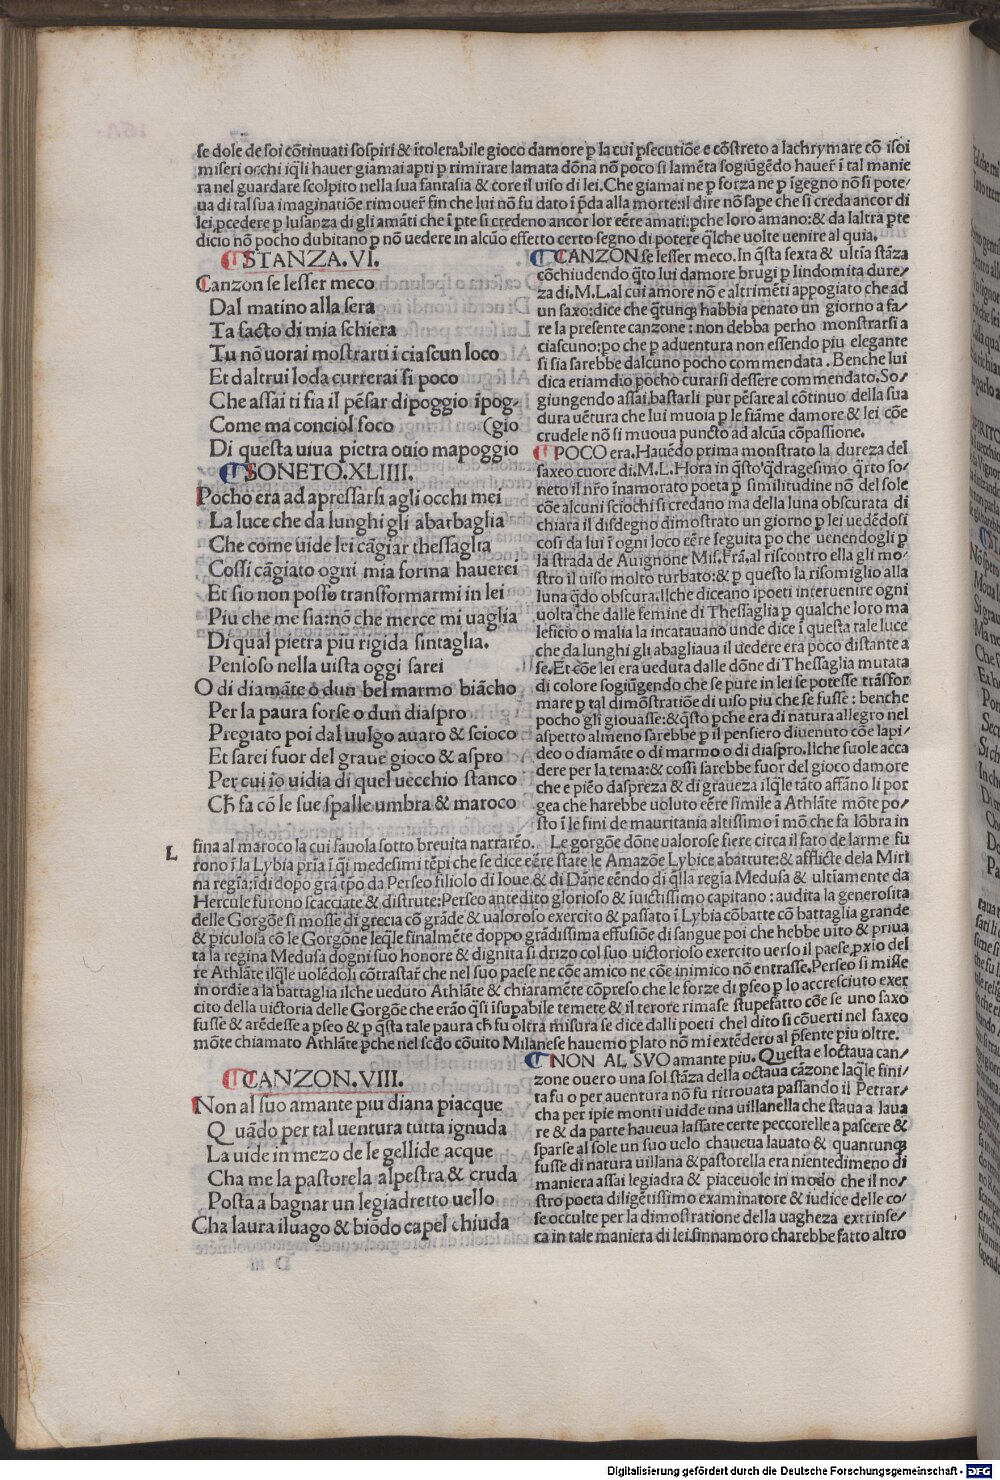 se dole de soi cõtinuati sospiri & ĩtolerabile gioco damore ꝑ la cui ꝑsecutiõe e cõstreto a lachrymare cõ isoi
miseri occhi iq̃li hauer giamai apti ꝑ rimirare lamata dõna nõ poco si lamẽta sogiũgẽdo hauer̃ ĩ tal manie
ra nel guardare scolpito nella sua fantasia & core il uiso di lei. Che giamai ne ꝑ forza ne ꝑ ĩgegno nõ si pote/
ua di tal sua imaginatiõe rimouer̃ fin che lui nõ fu dato ĩ p̃da alla morte: il dire nõ sape che si creda ancor di
lei ꝓcedere ꝑ lusanza di gli amãti che ĩ ꝑte si credeno ancor lor eẽre amati: ꝑche loro amano: & da laltra ꝑte
dicio nõ pocho dubitano ꝑ nõ uedere in alcũo effetto certo segno di potere q̃lche uolte uenire al quia.
STANZA. VI.
Canzon se lesser meco
Dal matino alla sera
Ta facto di mia schiera
Tu nõ uorai mostrarti ĩ ciascun loco
Et daltrui loda currerai si poco
Che assai ti fia il pẽsar di poggio ĩ pog-
Come ma conciol foco (gio
Di questa uiua pietra ouio mapoggio
SONETO. XLIIII.
Pocho era ad apressarsi agli occhi mei
La luce che da lunghi gli abarbaglia
Che come uide lei cãgiar thessaglia
Cossi cãgiato ogni mia forma hauerei
Et sio non posso transformarmi in lei
Piu che me sia: nõ che merce mi uaglia
Di qual pietra piu rigida sintaglia.
Pensoso nella uista oggi sarei
O di diamãte o dun bel marmo biãcho
Per la paura forse o dun diaspro
Pregiato poi dal uulgo auaro & scioco
Et sarei fuor del graue gioco & aspro
Per cui io uidia di quel uecchio stanco
Ch̃ fa cõ le sue spalle umbra & maroco
CANZON se lesser meco. In q̃sta sexta & ultĩa stãza
cõchiudendo q̃to lui damore brugi ꝑ lindomita dure/
za di. M. L. al cui amore nõ e altrimẽti appogiato che ad
un saxo: dice che q̃tunqꝫ habbia penato un giorno a fa/
re la presente canzone: non debba perho monstrarsi a
ciascuno: po che ꝑ aduentura non essendo piu elegante
si sia sarebbe dalcuno pocho commendata. Benche lui
dica etiamdio pocho curarsi dessere commendato. So/
giungendo assai bastarli pur pẽsare al cõtinuo della sua
dura uẽtura che lui muoia ꝑ le fiãme damore & lei cõe
crudele nõ si muoua puncto ad alcũa cõpassione.
POCO era. Hauẽdo prima monstrato la dureza del
saxeo cuore di. M. L. Hora in q̃sto q̃dragesimo q̃rto so/
neto il nr̃o ĩnamorato poeta ꝑ similitudine nõ del sole
cõe alcuni sciochi si credano ma della luna obscurata di
chiara il disdegno dimostrato un giorno ꝑ lei uedẽdosi
cosi da lui ĩ ogni loco eẽre seguita po che uenendogli ꝑ
la strada de Auignone Mis. Frã. al riscontro ella gli mo/
stro il uiso molto turbato: & ꝑ questo la risomiglio alla
luna q̃do obscura. Ilche diceano ipoeti interuenire ogni
uolta che dalle femine di Thessaglia ꝑ qualche loro ma
leficio o malia la incatauano unde dice ĩ questa tale luce
che da lunghi gli abagliaua il uedere era poco distante a
se. Et cõe lei era ueduta dalle dõne di Thessaglia mutata
di colore sogiũgendo che se pure in lei se potesse trãsfor
mare ꝑ tal dimõstratiõe di uiso piu che se fusse: benche
pocho gli giouasse: & q̃sto ꝑche era di natura allegro nel
aspetto almeno sarebbe ꝑ il pensiero diuenuto cõe lapi/
deo o diamãte o di marmo o di diaspro. Ilche suole acca
dere per la tema: & cossi sarebbe fuor del gioco damore
che e piẽo daspreza & di graueza ilq̃le tãto affãno li por
gea che harebbe uoluto eẽre simile a Athlãte mõte po/
sto ĩ le fini de mauritania altissimo ĩ mõ che fa lõbra in
L
fina al maroco la cui fauola sotto breuita narrarẽo. Le gorgõe dõne ualorose fiere circa il fato de larme fu
rono ĩ la Lybia pria ĩ q̃i medesimi tẽpi che se dice eẽre state le Amazõe Lybice abattute: & afflicte dela Miri
na regĩa: ĩdi dopo grã tp̃o da Perseo filiolo di Ioue & di Dãne eẽndo di q̃lla regĩa Medusa & ultĩamente da
Hercule furono scacciate & distrute: Perseo antedito glorioso & ĩuictissimo capitano: audita la generosita
delle Gorgõe si mosse di grecia cõ grãde & ualoroso exercito & passato ĩ Lybia cõbatte cõ battaglia grande
& piculosa cõ le Gorgõne leq̃le finalmẽte doppo grãdissima effusiõe di sangue poi che hebbe uito & priua
ta la regina Medusa dogni suo honore & dignita si drizo col suo uictorioso exercito uerso il paese ꝓxio del
re Athlãte ilq̃le uolẽdoli cõtrastar̃ che nel suo paese ne cõe amico ne cõe inimico nõ entrasse. Perseo si misse
in ordie a la battaglia ilche ueduto Athlãte & chiaramẽte cõpreso che le forze di ꝑseo ꝑ lo accresciuto exer
cito della uictoria delle Gorgõe che erão q̃si ĩsupabile temete & il terore rimase stupefatto cõe se uno saxo
fusse & arẽdesse a ꝑseo & ꝑ q̃sta tale paura ch̃ fu oltra misura se dice dalli poeti chel dito si cõuerti nel saxeo
mõte chiamato Athlãte ꝑche nel se͠do cõuito Milanese hauemo ꝑlato nõ mi extẽdero al p̃sente piu oltre.
CANZON. VIII.
Non al suo amante piu diana piacque
Quãdo per tal uentura tutta ignuda
La uide in mezo de le gellide acque
Cha me la pastorela alpestra & cruda
Posta a bagnar un legiadretto uello
Cha laura iluago & biõdo capel chiuda
NON AL SVO amante piu. Questa e loctaua can/
zone ouero una sol stãza della octaua cãzone laq̃le fini/
ta fu o per auentura nõ fu ritrouata passando il Petrar/
cha per ipie monti uidde una uillanella che staua a laua
re & da parte haueua lassate certe peccorelle a pascere &
sparse al sole un suo uelo chaueua lauato & quantunqꝫ
fusse di natura uillana & pastorella era nientedimeno di
maniera assai legiadra & piaceuole in modo che il no/
stro poeta diligẽtissimo examinatore & iudice delle co/
se occulte per la dimostratione della uagheza extrinse/
ca in tale maniera di lei sinnamoro charebbe fatto altro
Digitalisierung gefördert durch die Deutsche Forschungsgemeinschaft - DFG